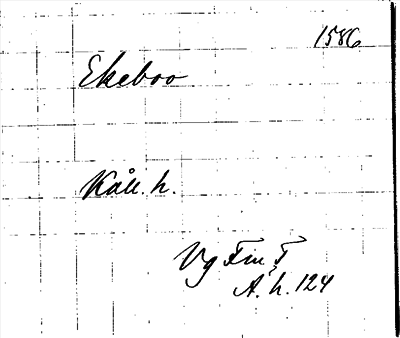 1586
Ekeboo
Kåll. h.
Vg Fin T
Å. h. 124